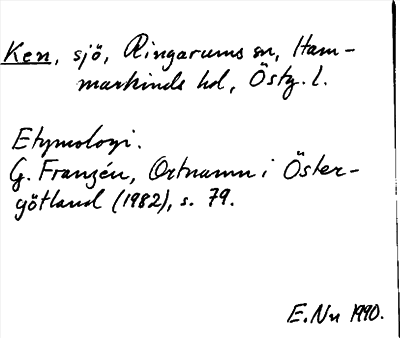 Ken, sjö, Ringarums sn, Ham-
markinds hd, Östg. l.
Etymologi.
G. Franzén, Ortnamn i Öster-
götland (1982), s. 79.
E. Nn 1990.